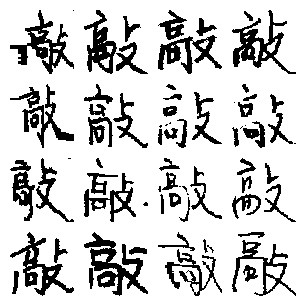 敲敲敲敲
敲敲敲敲
敲敲敲敲
敲敲敲敲